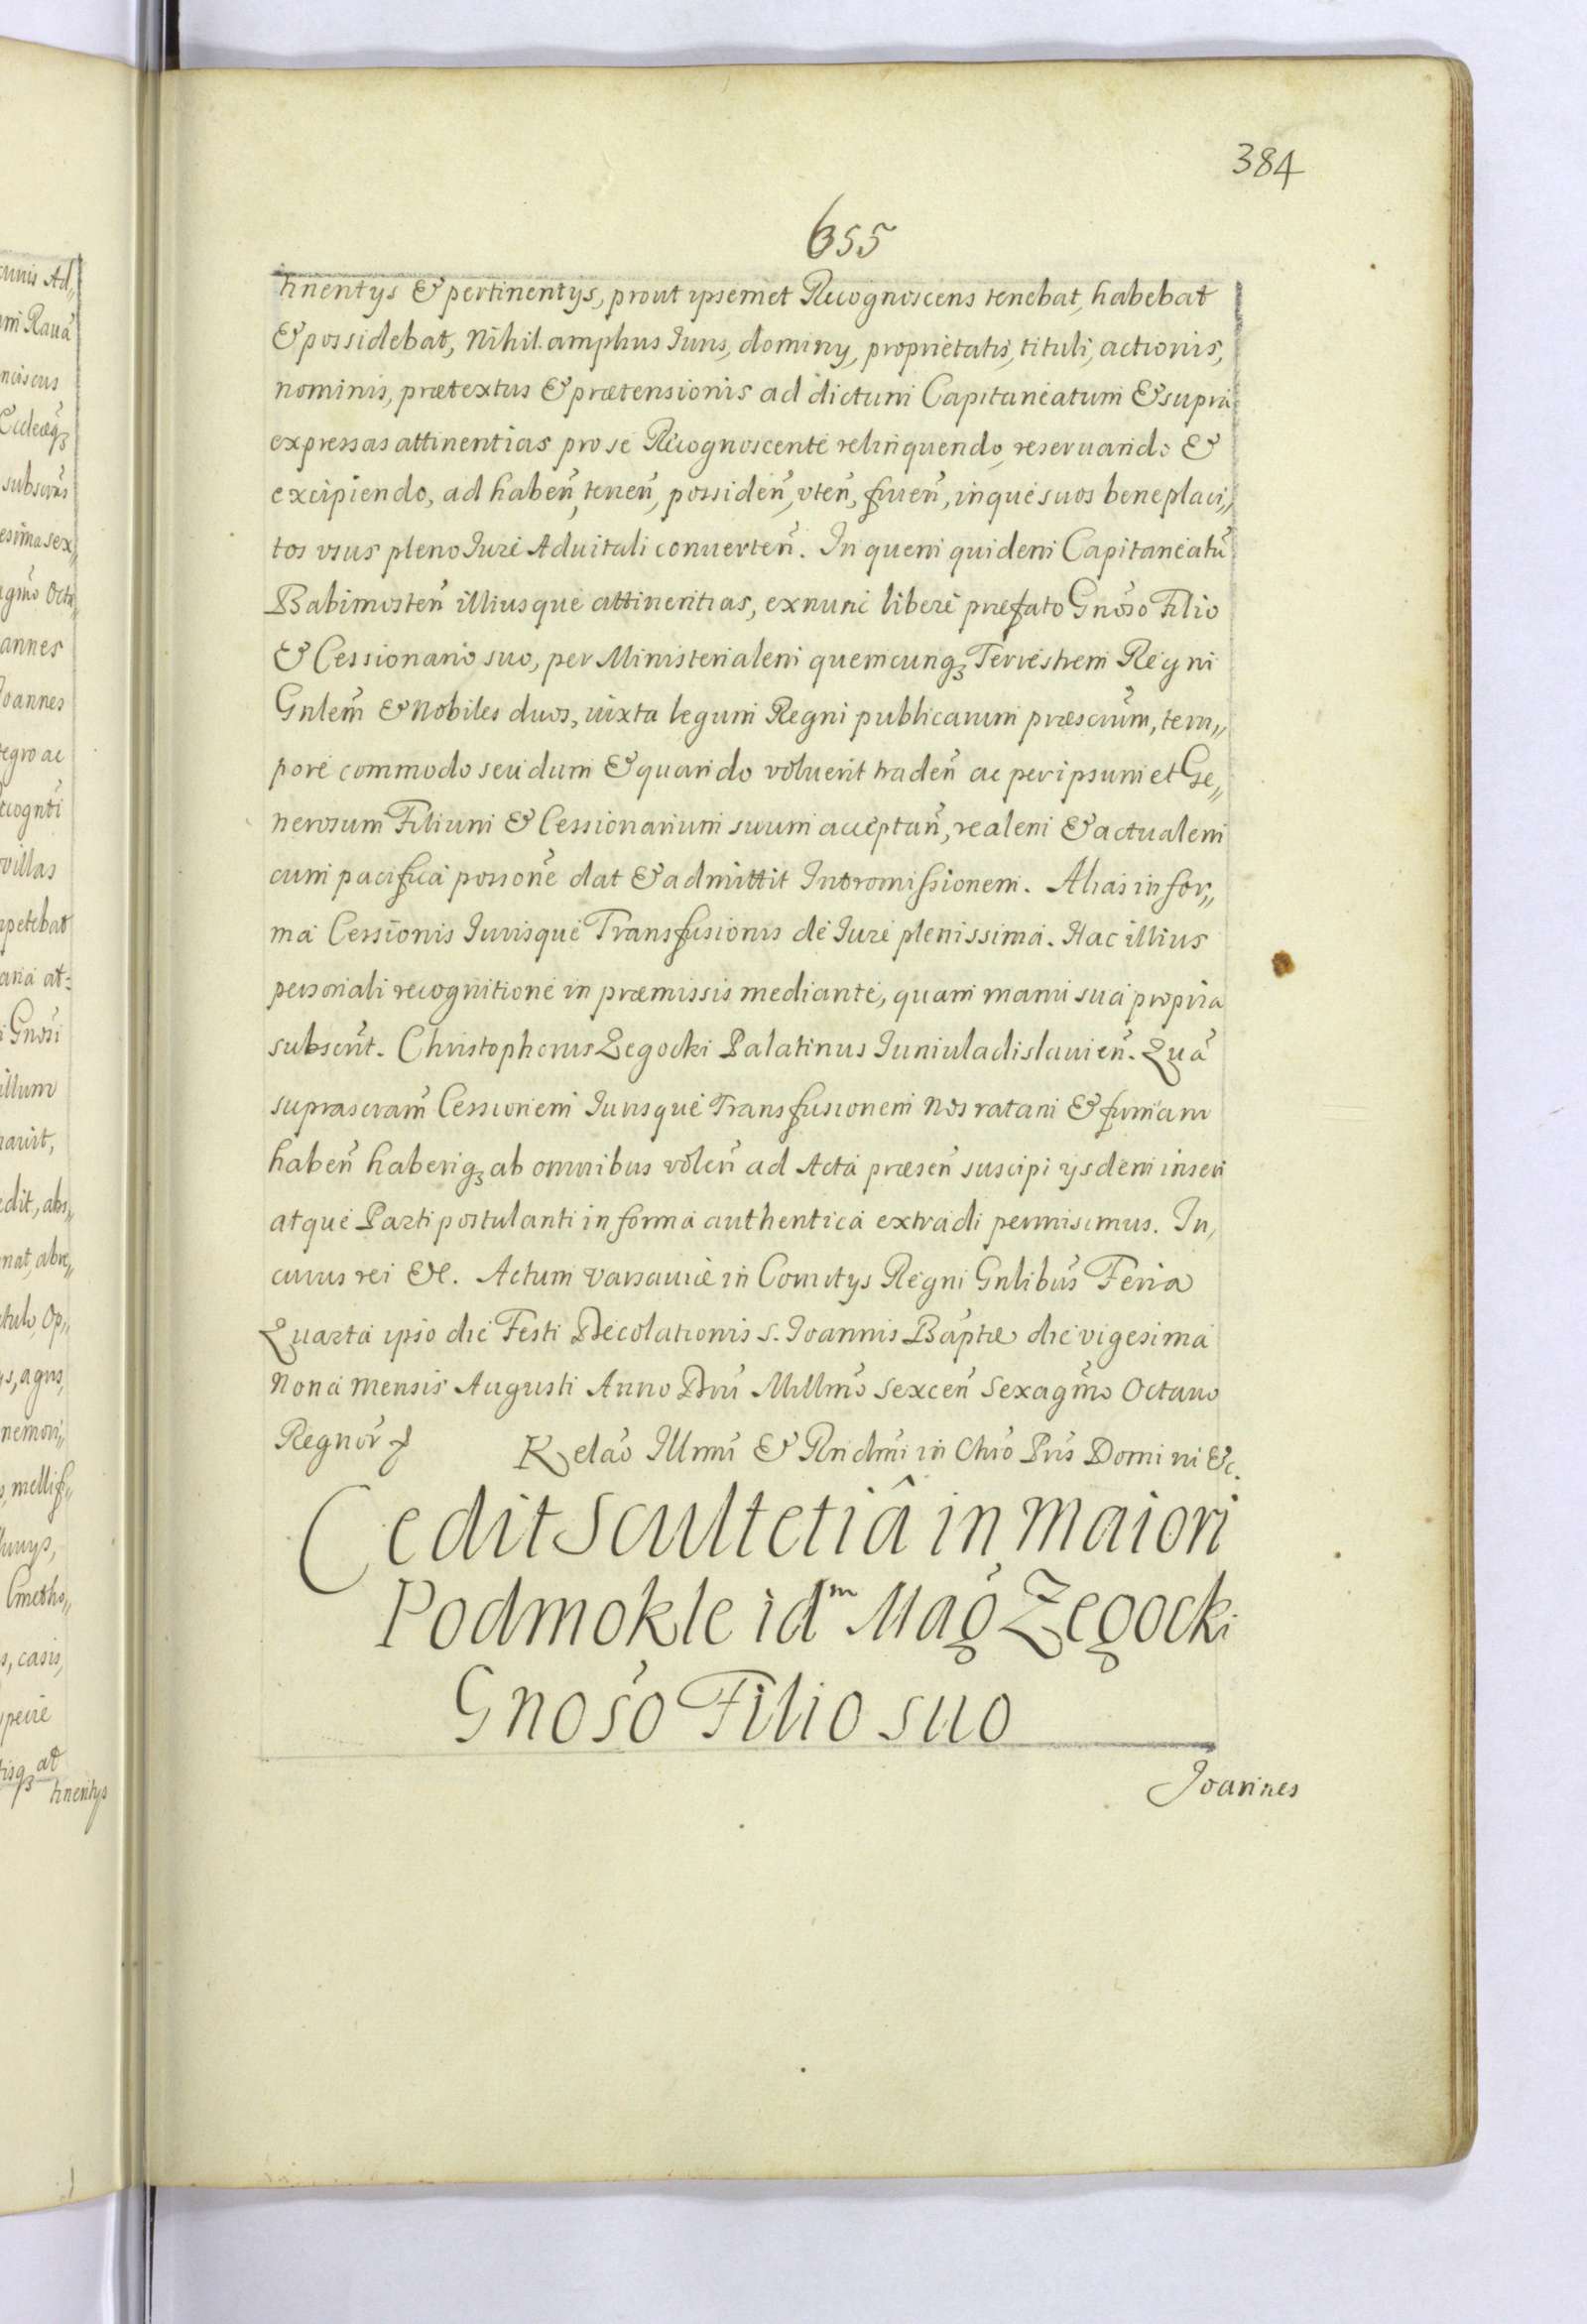 384
655
tinentijs & pertinentijs, prout ipsemet Recognoscens tenebat, habebat
& possidebat, Nihil amplius Iuris, dominij, proprietatis, tituli, actionis,
nominis, prætextus & prætensionis ad dictum Capitaneatum & supra
expressas attinentias pro se Recognoscente relinquendo, reseruando &
excipiendo, ad haben̄, tenen̄, possiden̄, vten̄, fruen̄, inque suos beneplaci,,
tos vsus pleno Iure Aduitali conuerten̄. In quem quidem Capitaneatū
Babimosten̄ illiusque attinentias, exnunc libere præfato Gnōso Filio
& Cessionario suo, per Ministerialem quemcunqꝫ Terrestrem Regni
Gnlem̄ & Nobiles duos, iuxta legum Regni publicarum præscrūm, tem,,
pore commodo seu dum & quando voluerit traden̄ ac per ipsum et Ge,,
nerosum Filium & Cessionarium suum acceptan̄, realem & actualem
cum pacifica possōne dat & admittit Intromissionem. Alias in for,,
ma Cessionis Iurisque Transfusionis de Iure plenissima. Hac illius
personali recognitione in præmissis mediante, quam manu sua propria
subscrīt. Christophorus Zegocki Palatinus Iuniuladislauien̄. Quā
suprascram̄ Cessionem Iurisque Transfusionem Nos ratam & firmam
haben̄ haberiqꝫ ab omnibus volen̄ ad Acta præsen̄ suscipi ijsdem inseri
atque Parti postulanti in forma authentica extradi permisimus. In,
cuius rei &c. Actum Varsauiæ in Comitijs Regni Gnlibūs Feria
Quarta ipso die Festi Decolationis S. Joannis Baptæ die vigesima
Nona Mensis Augusti Anno Dnī Millmō Sexcen̄ Sexagmō Octauo
Regnor̄ Relaō Illmī & Rndmī in Chrō Pris Domini &c.
Cedit Scultetiâ in Maiori
Podmokle idᵐ Mag̃ Zegocki
Gnōso Filio suo
Joannes